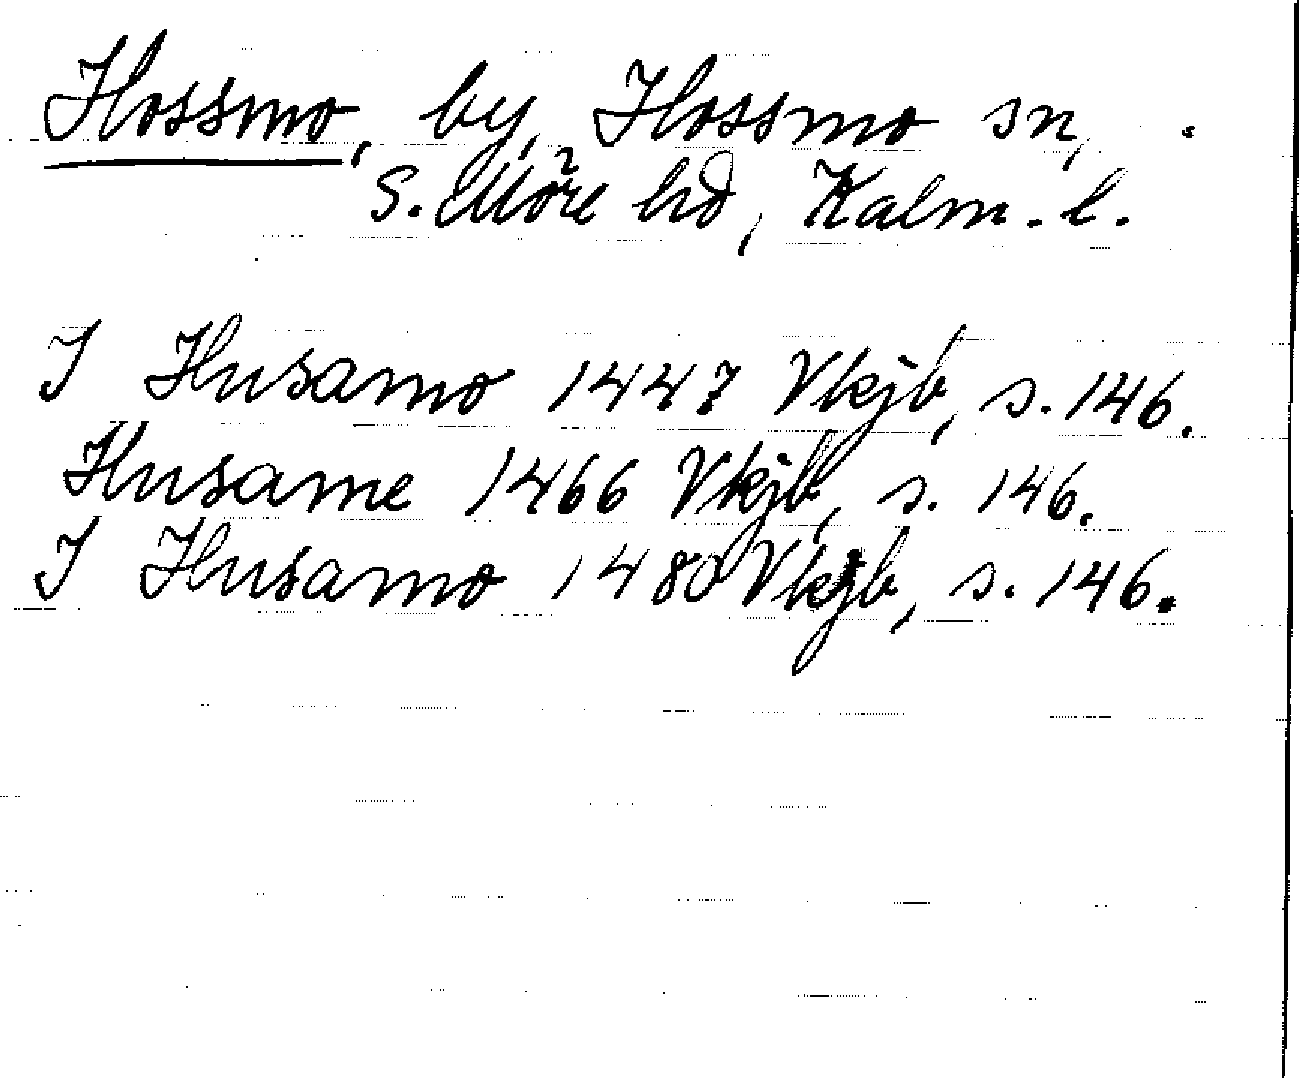 Hossmo, by, Hossmo sn,
S. Möre hd, Kalm. l.
I Husamo 1447 Vkjb, s. 146.
Husame 1466 Vkjb, s. 146.
I Husamo 1480 Vkjb, s. 146.